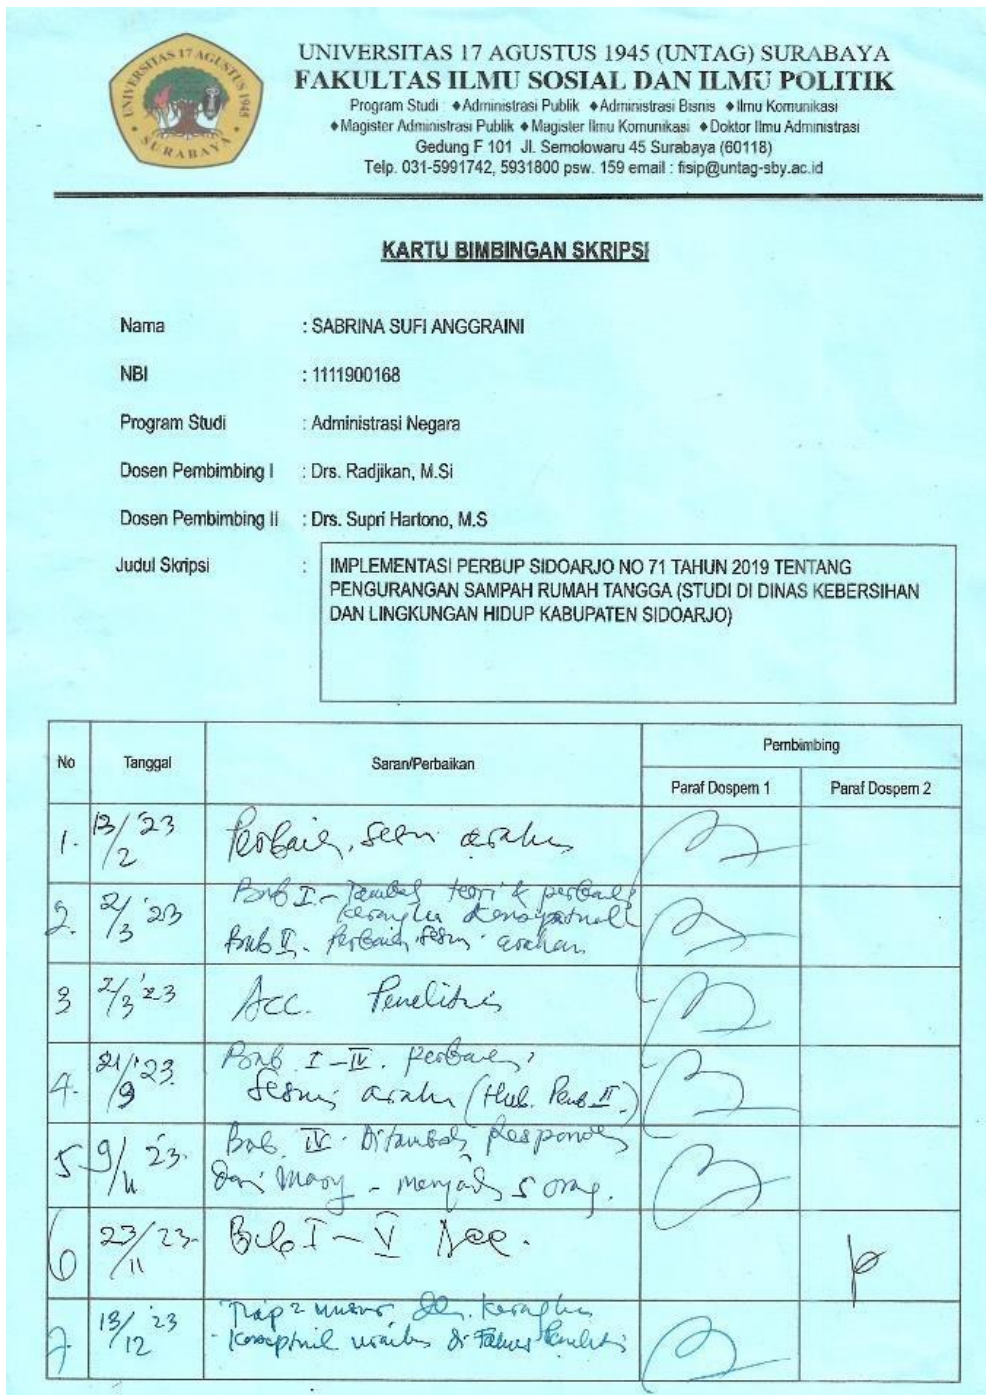 UNIVERSITAS 17 AGUSTUS 1945
SURABAYA
UNIVERSITAS 17 AGUSTUS 1945 (UNTAG) SURABAYA
FAKULTAS ILMU SOSIAL DAN ILMU POLITIK
Program Studi : ♦Administrasi Publik ♦Administrasi Bisnis ♦Ilmu Komunikasi
♦Magister Administrasi Publik ♦Magister Ilmu Komunikasi ♦Doktor Ilmu Administrasi
Gedung F 101 Jl. Semolowaru 45 Surabaya (60118)
Telp. 031-5991742, 5931800 psw. 159 email : fisip@untag-sby.ac.id
KARTU BIMBINGAN SKRIPSI
Nama : SABRINA SUFI ANGGRAINI
NBI : 1111900168
Program Studi : Administrasi Negara
Dosen Pembimbing I : Drs. Radjikan, M.Si
Dosen Pembimbing II : Drs. Supri Hartono, M.S
Judul Skripsi : IMPLEMENTASI PERBUP SIDOARJO NO 71 TAHUN 2019 TENTANG
PENGURANGAN SAMPAH RUMAH TANGGA (STUDI DI DINAS KEBERSIHAN
DAN LINGKUNGAN HIDUP KABUPATEN SIDOARJO)
No Tanggal Saran/Perbaikan Pembimbing
Paraf Dospem 1 Paraf Dospem 2
1. 13/2 '23 Perbaiki, sesuai arahan
2. 2/3 '23 Bab I - Tambah teori & perbaiki
kerangka konseptual
Bab II - Perbaiki sesuai arahan
3 2/3 '23 Acc. Penelitian
4. 21/9 '23. Bab I - IV. perbaiki
sesuai arahan (Hub. Pemb II.)
5 9/11 23. Bab IV. Ditambah Responden
dari Masy - menjadi 5 orang.
6 23/11 23- Bab I - V Acc.
7. 13/12 '23 kerangka